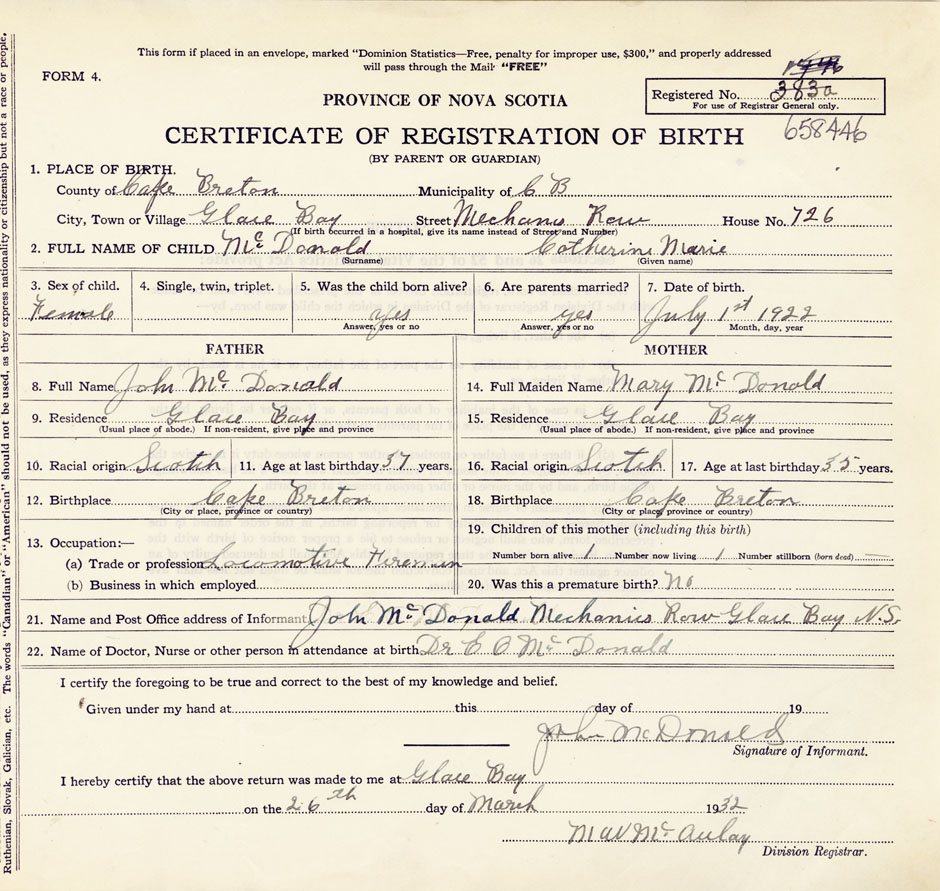 This form if placed in an envelope, marked “Dominion Statistics—Free, penalty for improper use, $300,” and properly addressed
will pass through the Mail “FREE”
FORM 4.
Registered No. 383a
For use of Registrar General only.
PROVINCE OF NOVA SCOTIA
658446
CERTIFICATE OF REGISTRATION OF BIRTH
(BY PARENT OR GUARDIAN)
1. PLACE OF BIRTH.
County of Cape Breton Municipality of C B
City, Town or Village Glace Bay Street Mechanis Row House No. 726
(If birth occurred in a hospital, give its name instead of Street and Number)
2. FULL NAME OF CHILD Mc Donald Catherine Marie
(Surname) (Given name)
3. Sex of child. 4. Single, twin, triplet. 5. Was the child born alive? 6. Are parents married? 7. Date of birth.
Female yes yes July 1st 1922
Answer, yes or no Answer, yes or no Month, day, year
FATHER MOTHER
8. Full Name John Mc Donald 14. Full Maiden Name Mary Mc Donald
9. Residence Glace Bay 15. Residence Glace Bay
(Usual place of abode.) If non-resident, give place and province (Usual place of abode.) If non-resident, give place and province
10. Racial origin Scotch 11. Age at last birthday 37 years. 16. Racial origin Scotch 17. Age at last birthday 35 years.
12. Birthplace Cape Breton 18. Birthplace Cape Breton
(City or place, province or country) (City or place, province or country)
19. Children of this mother (including this birth)
13. Occupation:—
Number born alive 1 Number now living 1 Number stillborn (born dead) —
(a) Trade or profession Locomotive Fireman
(b) Business in which employed 20. Was this a premature birth? No
21. Name and Post Office address of Informant John Mc Donald Mechanics Row Glace Bay N.S.
22. Name of Doctor, Nurse or other person in attendance at birth Dr E O Mc Donald
I certify the foregoing to be true and correct to the best of my knowledge and belief.
Given under my hand at this day of 19
John McDonald
Signature of Informant.
I hereby certify that the above return was made to me at Glace Bay
on the 26th day of March 1932
Mc Aulay
Division Registrar.
Ruthenian, Slovak, Galician, etc. The words “Canadian” or “American” should not be used, as they express nationality or citizenship but not a race or people.